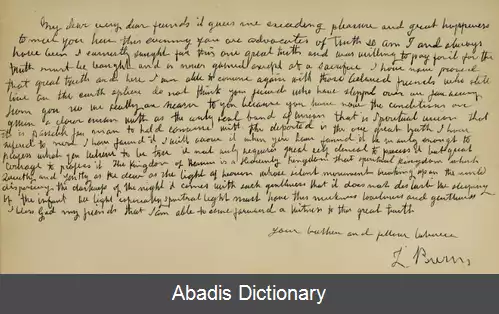 My dear very dear friends it gives me exceeding pleasure and great happiness
to meet you here this evening you are advocates of truth so am I and always
have been I earnestly sought for this one great truth and was willing to pay for it for the
truth must be bought and is never gained except at a sacrifice I have now proved
that great truth and here I am able to commune again with those beloved friends who still
live on the earth sphere do not think you friends who have stepped out on
you no we really are nearer to you because you have now the conditions
given a closer union with as the only real band of union that is spiritual union that
it is possible for man to hold converse with the departed is the one great truth I have
referred to now I have found it I will avow it when you have found it be manly enough to
profess which you believe to be true it not only requires great but
courage to profess it The Kingdom of Heaven is a Heavenly Kingdom that spiritual Kingdom which
quietly and softly as the dew as the light of heaven whose silent movement breaking upon the world
dispersing the darkness of the night it comes with such gentleness that it does not disturb the sleeping
of the infant he light especially spiritual light must have this meekness and gentleness
I bless God my friends that I am able to come forward a witness to this great truth
your brother and fellow labourer
L Burns
Abadis Dictionary